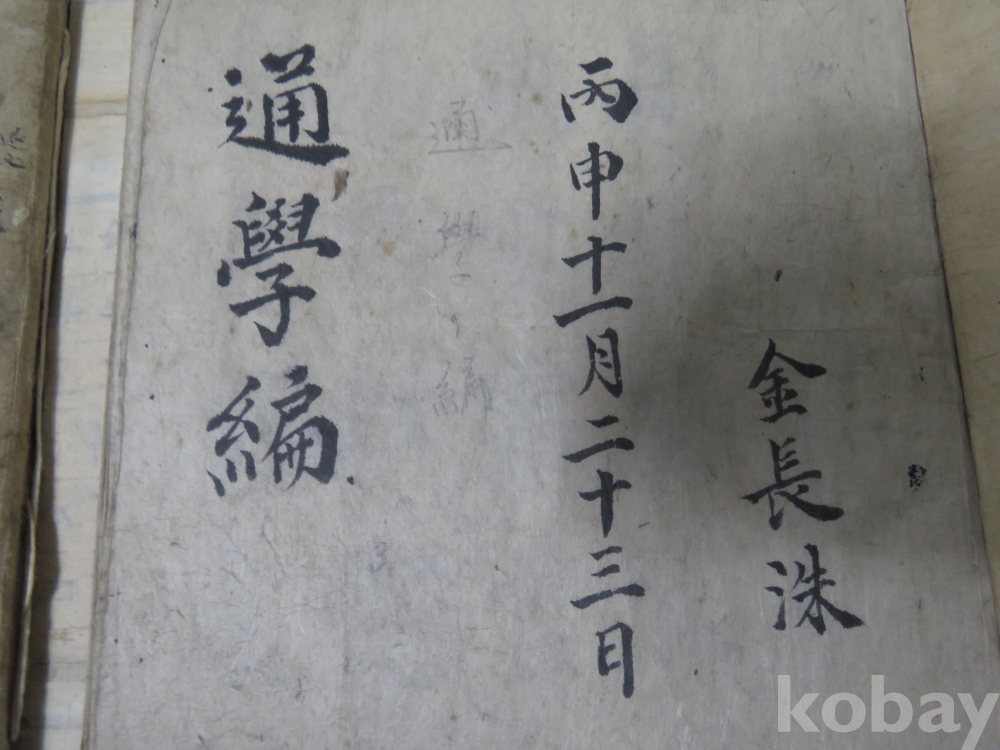 金長洙
丙申十一月二十三日
通學編
通學編
kobay